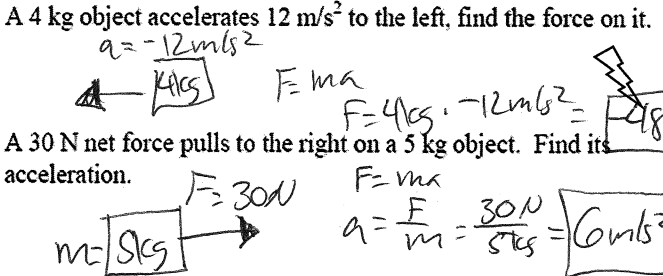 A 4 kg object accelerates 12 m/s² to the left, find the force on it.
a = -12m/s²
4kg F=ma
F=4kg · -12m/s² = -48
A 30 N net force pulls to the right on a 5 kg object. Find its
acceleration.
F=30N F=ma
m= 5kg a = F/m = 30N/5kg = 6m/s²